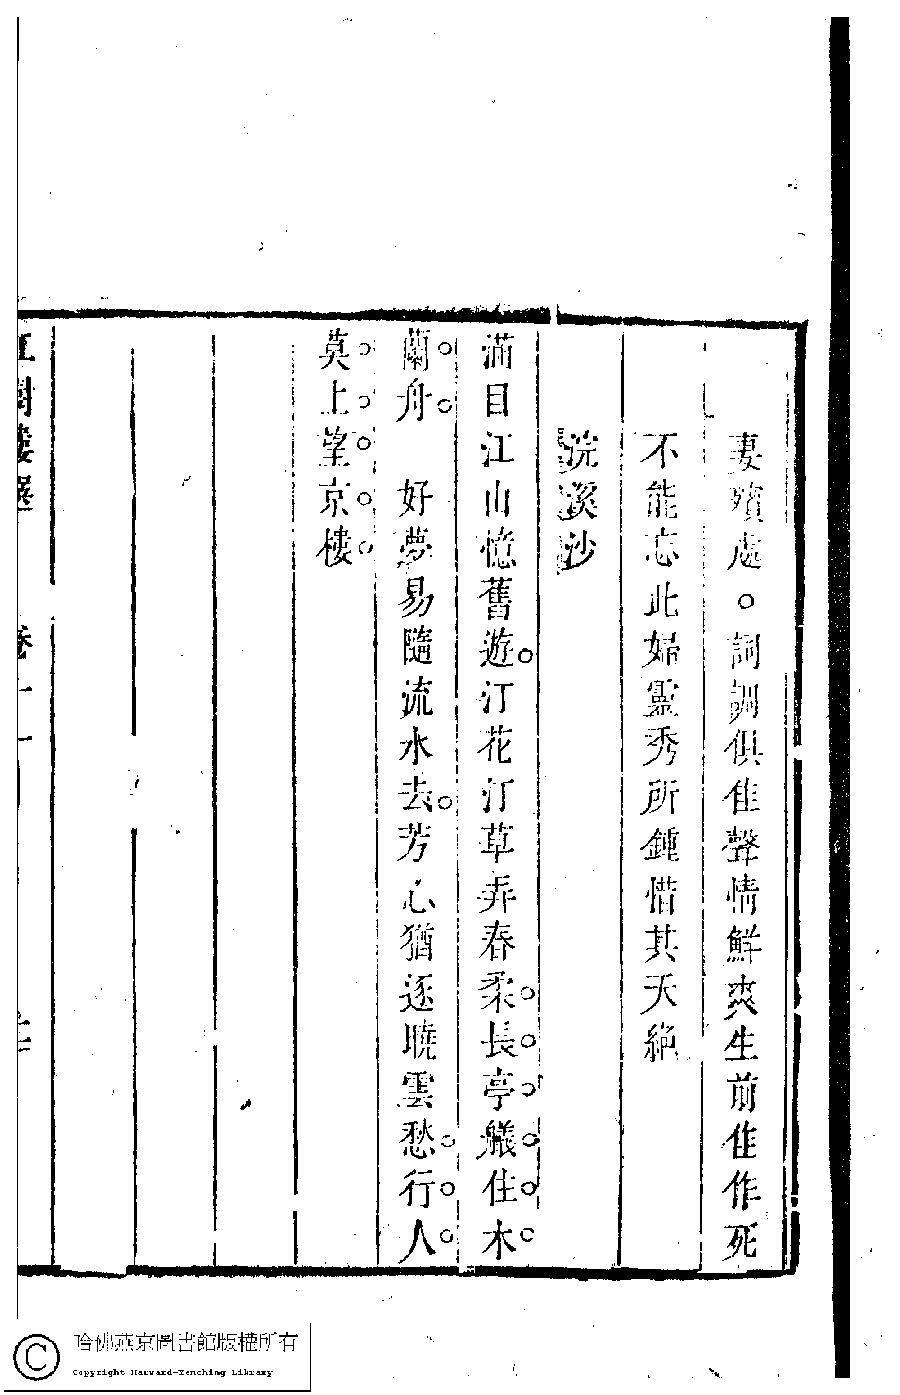 妻殯處。詞調俱佳聲情鮮爽生前佳作死
不能忘此婦靈秀所鍾惜其夭絶
浣溪沙
滿目江山憶舊遊。汀花汀草弄春柔。長亭艤住木
蘭舟。好夢易隨流水去。芳心猶逐曉雲愁。行人
莫上望京樓。
紅樹樓選 卷十一
哈佛燕京圖書館版權所有
Copyright Harvard-Yenching Library